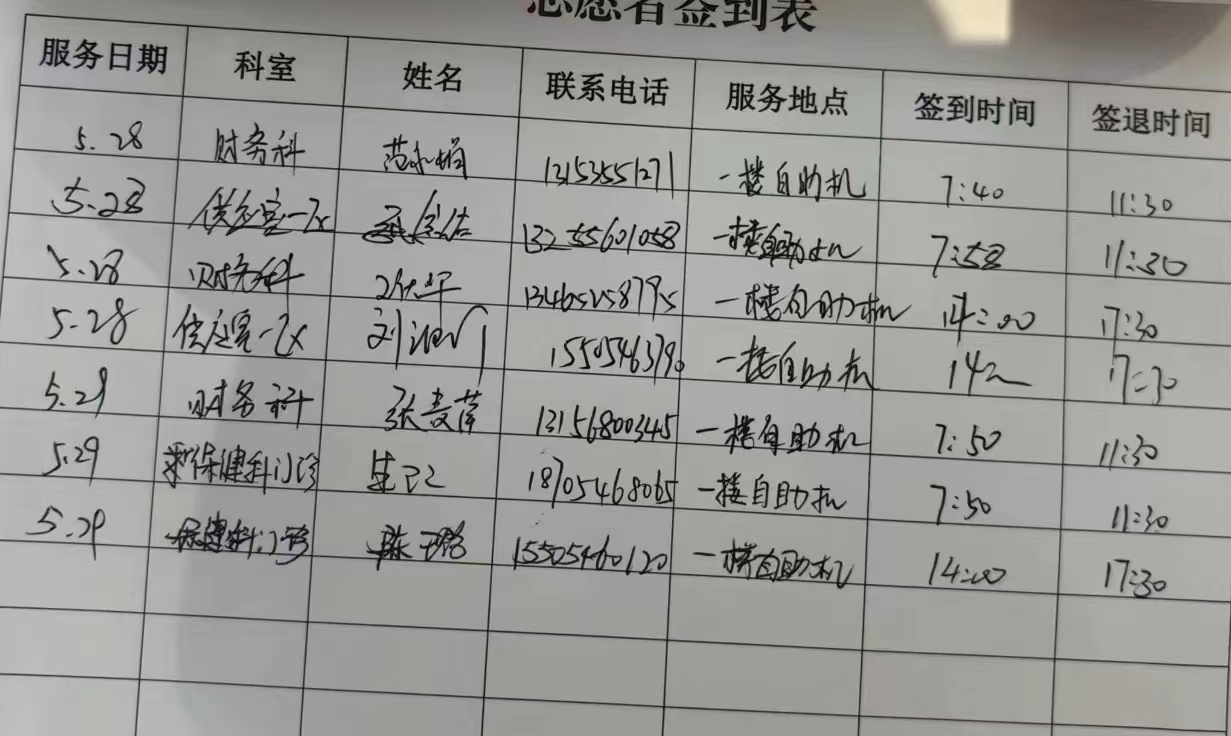 志愿者签到表
服务日期 科室 姓名 联系电话 服务地点 签到时间 签退时间
5.28 财务科 范小娟 13153551271 一楼自助机 7:40 11:30
5.28 供应室一区 13255601058 一楼自助机 7:58 11:30
5.28 财务科 13465258795 一楼自助机 14:00 17:30
5.28 供应室一区 刘 15505463790 一楼自助机 17:30
5.29 财务科 张 13156800345 一楼自助机 7:50 11:30
5.29 保健科门诊 18705468065 一楼自助机 7:50 11:30
5.29 保健科门诊 陈 15505460120 一楼自助机 14:00 17:30